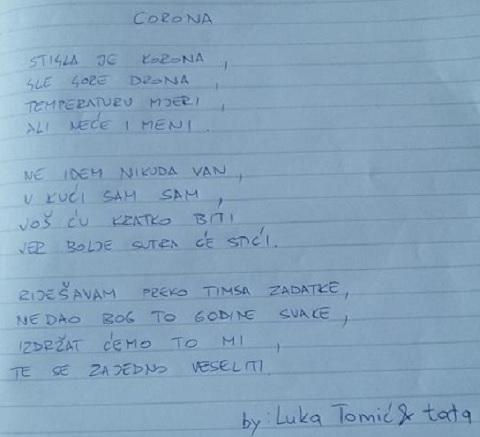 CORONA
STIGLA JE KORONA,
GLE GORE DRONA,
TEMPERATURU MJERI,
ALI NEĆE I MENI.
NE IDEM NIKUDA VAN,
U KUĆI SAM SAM,
JOŠ ĆU KRATKO BITI
JER BOLJE SUTRA ĆE STIĆI.
RIJEŠAVAM PREKO TIMSA ZADATKE,
NE DAO BOG TO GODINE SVAKE,
IZDRŽAT ĆEMO TO MI,
TE SE ZAJEDNO VESELITI.
by: Luka Tomić & tata